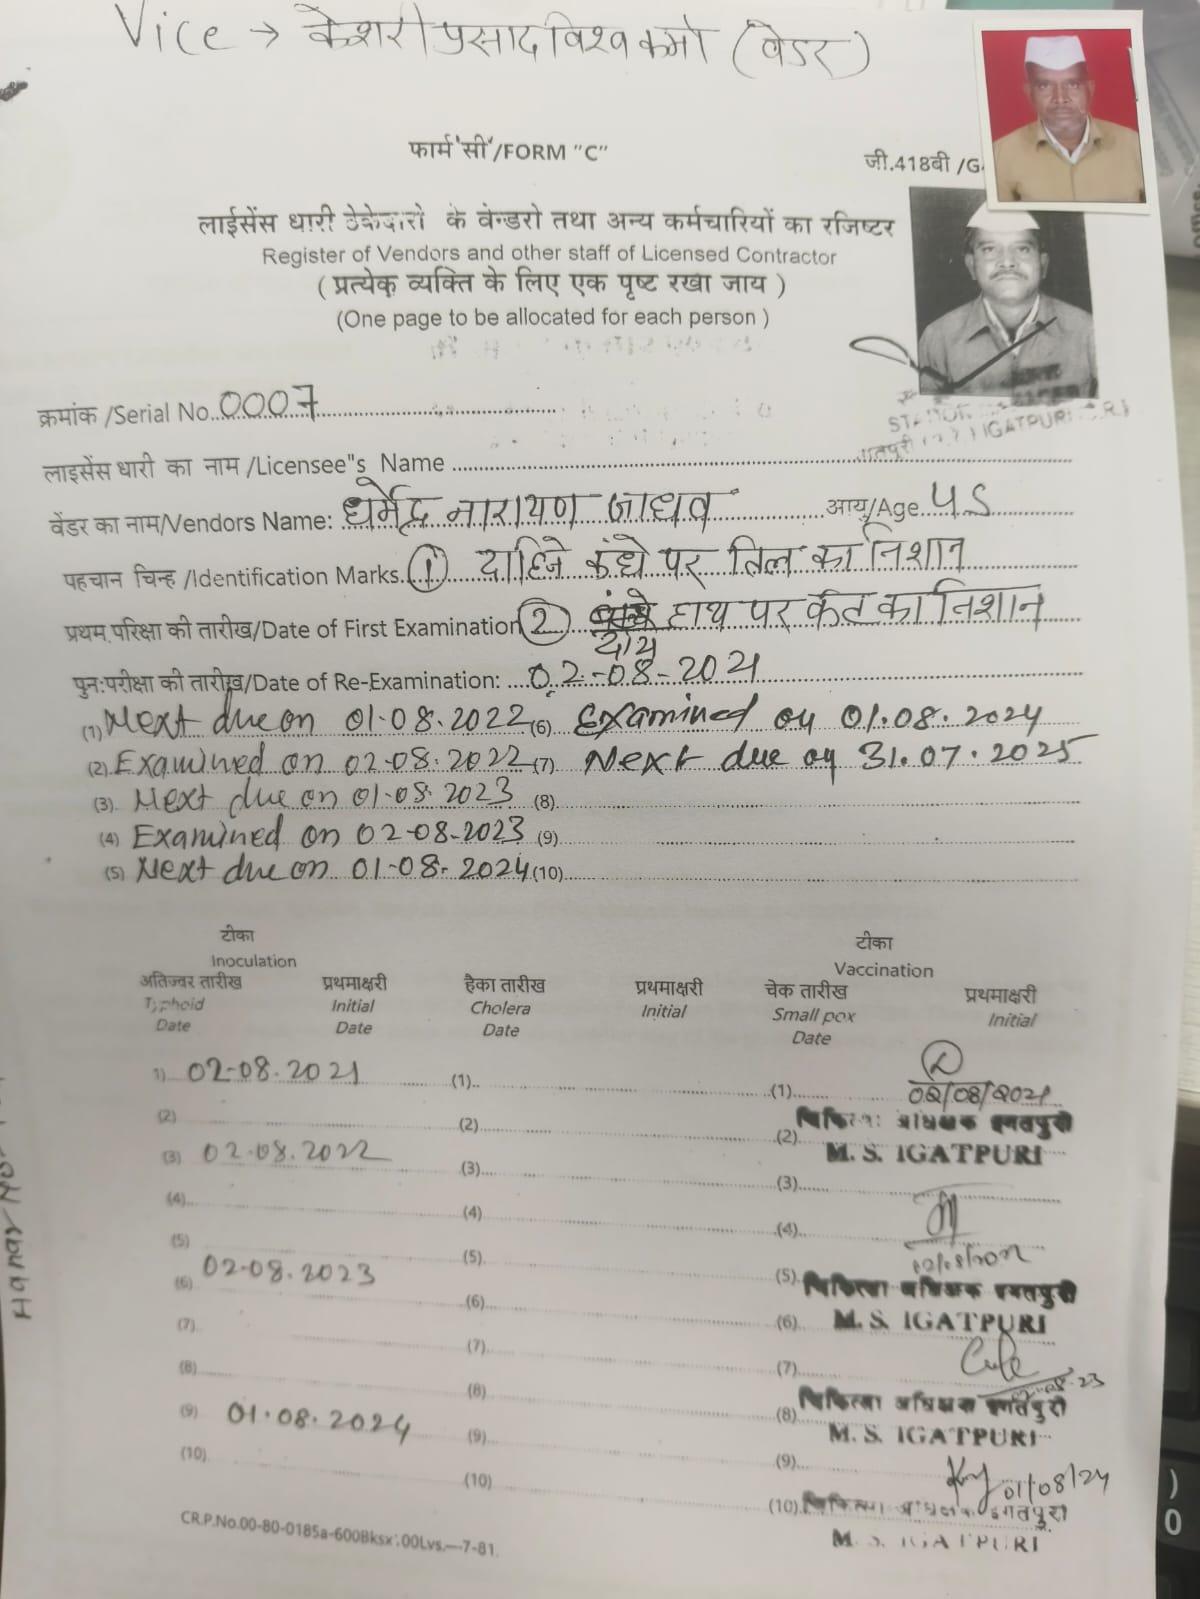 Vice → केशरी प्रसाद विश्वकर्मा (वेंडर)
फार्म 'सी'/FORM "C"
जी.418बी /G.
लाईसेंस धारी ठेकेदारो के वेन्डरो तथा अन्य कर्मचारियों का रजिष्टर
Register of Vendors and other staff of Licensed Contractor
( प्रत्येक व्यक्ति के लिए एक पृष्ट रखा जाय )
(One page to be allocated for each person )
क्रमांक /Serial No. 0007
IGATPURI
लाइसेंस धारी का नाम /Licensee"s Name
वेंडर का नाम/Vendors Name: धर्मेंद्र नारायण जाधव आयु/Age 45
पहचान चिन्ह /Identification Marks. (1) दाहिने कंधे पर तिल का निशान
प्रथम परिक्षा की तारीख/Date of First Examination (2) हाथ पर कट का निशान
पुनःपरीक्षा की तारीख/Date of Re-Examination: 02-08-2021
(1) Next due on 01.08.2022 (6) Examined on 01.08.2024
(2) Examined on 02-08.2022 (7) Next due on 31.07.2025
(3) Next due on 01-08.2023 (8)
(4) Examined on 02-08-2023 (9)
(5) Next due on 01-08-2024 (10)
टीका टीका
Inoculation Vaccination
अतिज्वर तारीख प्रथमाक्षरी हैका तारीख प्रथमाक्षरी चेक तारीख प्रथमाक्षरी
Typhoid Initial Cholera Initial Small pox Initial
Date Date Date Date
1) 02-08.2021 (1) (1) 02/08/2021
चिकित्सा अधिक्षक इगतपुरी
(2) (2) (2) M. S. IGATPURI
(3) 02.08.2022 (3) (3)
(4) (4) (4)
(5) (5) (5) चिकित्सा अधिक्षक इगतपुरी
(6) 02-08.2023 (6) (6) M. S. IGATPURI
(7) (7) (7)
(8) (8) (8) चिकित्सा अधिक्षक इगतपुरी
M. S. IGATPURI
(9) 01.08.2024 (9) (9) 01/08/24
(10) (10) (10) चिकित्सा अधिक्षक इगतपुरी
M. S. IGATPURI
CR.P.No.00-80-0185a-600Bksx100Lvs.—7-81.